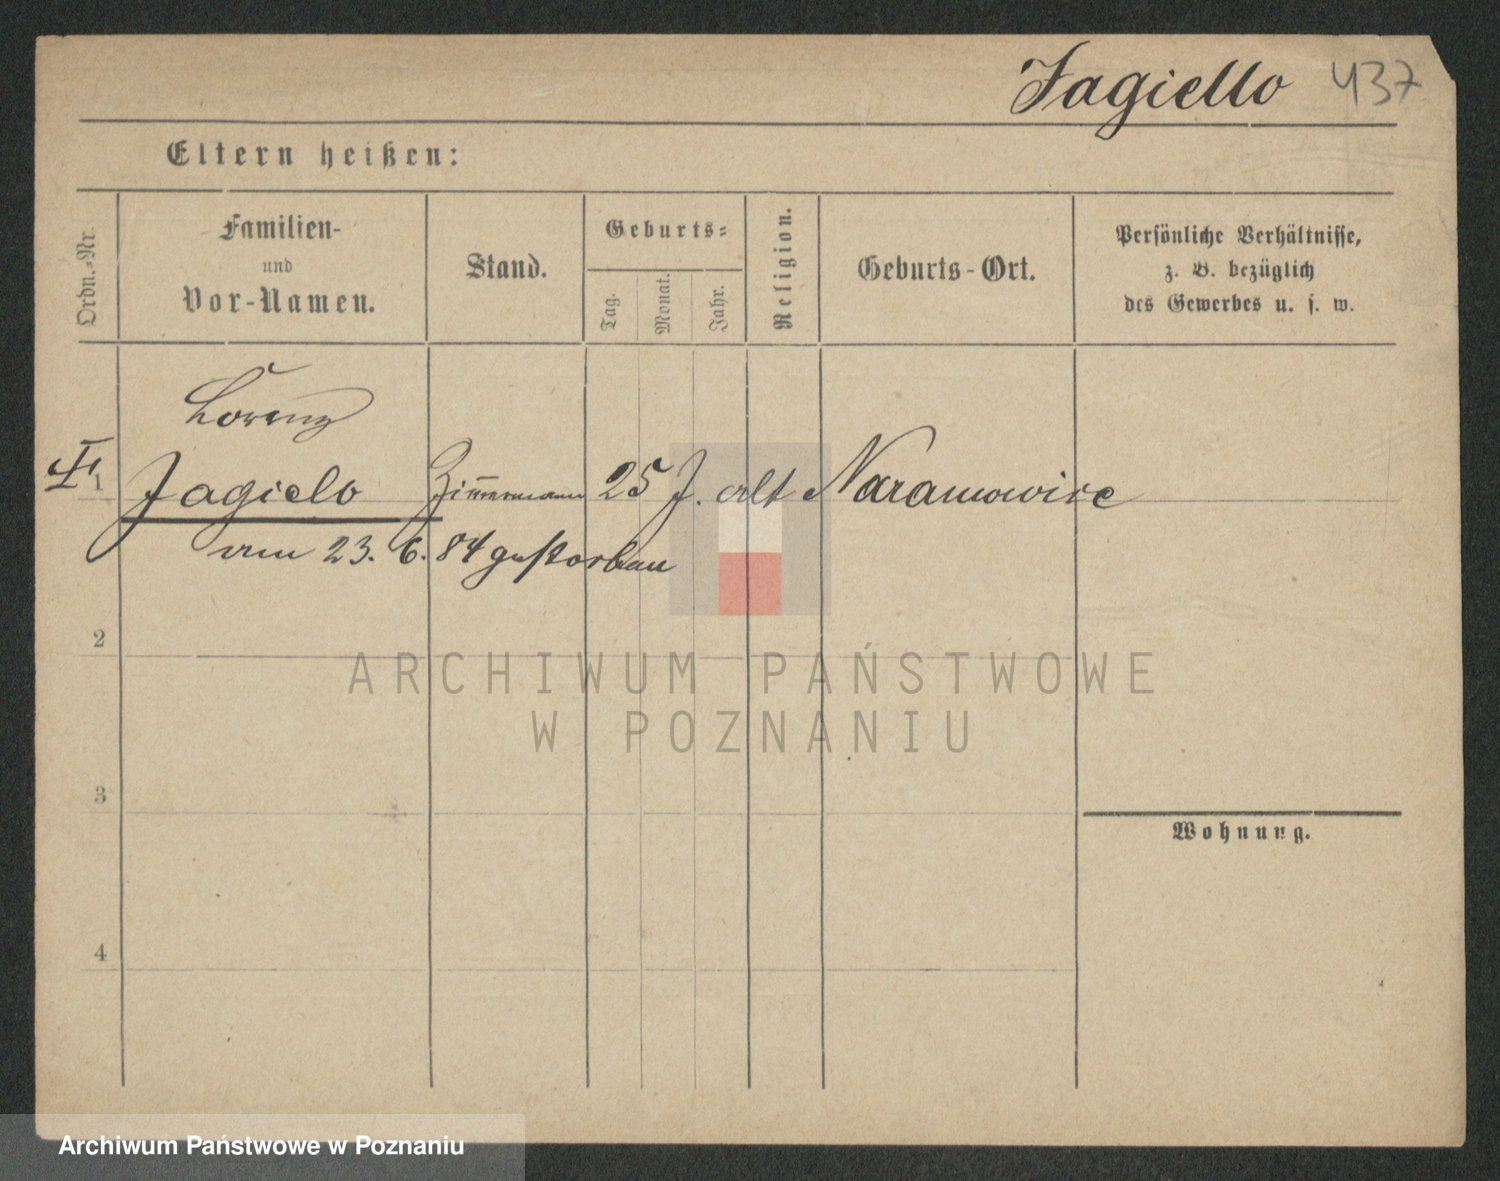 Jagiello 437
Eltern heißen:
Ordn.-Nr.
Familien-
und
Vor-Namen.
Stand.
Geburts-
Tag.
Monat.
Jahr.
Religion.
Geburts-Ort.
Persönliche Verhältnisse,
z. B. bezüglich
des Gewerbes u. s. w.
Lorenz
1 Jagielo Zim̅ermann 25 J. alt Naramowice
am 23. 6. 84 gestorben
2
3
4
Wohnung.
ARCHIWUM PAŃSTWOWE
W POZNANIU
Archiwum Państwowe w Poznaniu